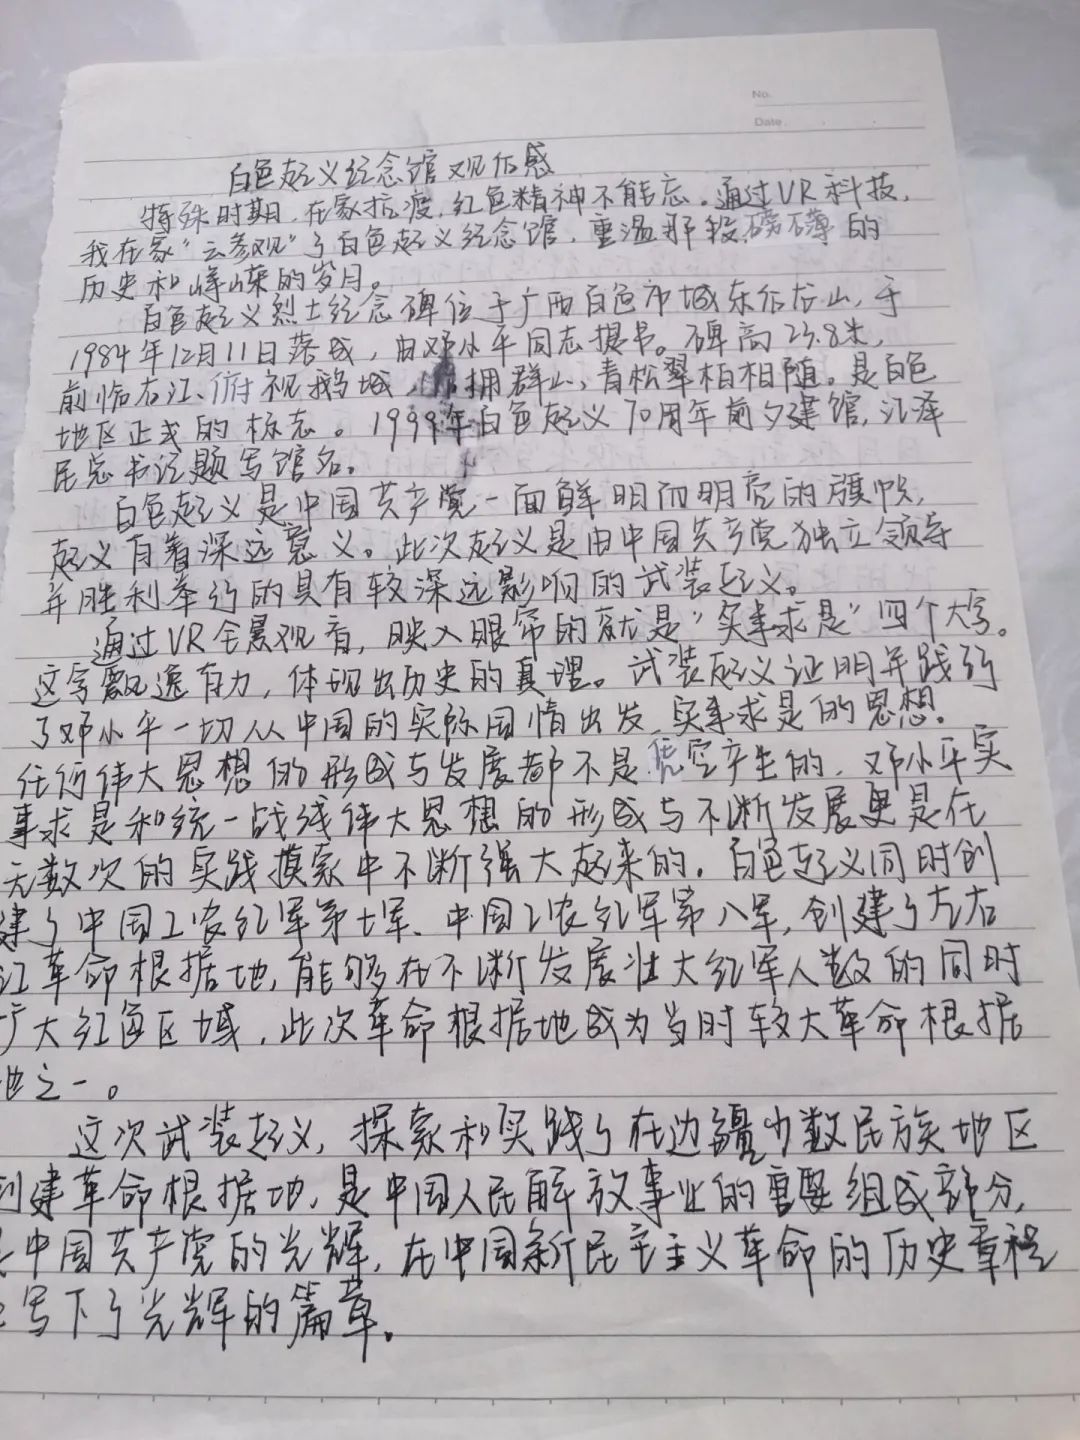 No.
Date
百色起义纪念馆观后感
特殊时期,在家抗疫,红色精神不能忘。通过VR科技,
我在家“云参观”了百色起义纪念馆,重温那段磅礴的
历史和峥嵘的岁月。
百色起义烈士纪念碑位于广西百色市城东后龙山,于
1984年12月11日落成,由邓小平同志提书。碑高23.8米,
前临右江、俯视鹅城,拥群山,青松翠柏相随。是百色
地区正式的标志。1999年百色起义70周年前夕建馆,江泽
民总书记题写馆名。
百色起义是中国共产党一面鲜明而明亮的旗帜,
起义有着深远意义。此次起义是由中国共产党独立领导
并胜利举行的具有较深远影响的武装起义。
通过VR全景观看,映入眼帘的就是“实事求是”四个大字。
这字飘逸有力,体现出历史的真理。武装起义证明并践行
了邓小平一切从中国的实际国情出发,实事求是的思想。
任何伟大思想的形成与发展都不是凭空产生的,邓小平实
事求是和统一战线伟大思想的形成与不断发展更是在
无数次的实践摸索中不断强大起来的。百色起义同时创
建了中国工农红军第七军、中国工农红军第八军,创建了左右
江革命根据地,能够在不断发展壮大红军人数的同时
扩大红色区域,此次革命根据地成为当时较大革命根据
地之一。
这次武装起义,探索和实践了在边疆少数民族地区
创建革命根据地,是中国人民解放事业的重要组成部分,
是中国共产党的光辉,在中国新民主主义革命的历史章程
写下了光辉的篇章。